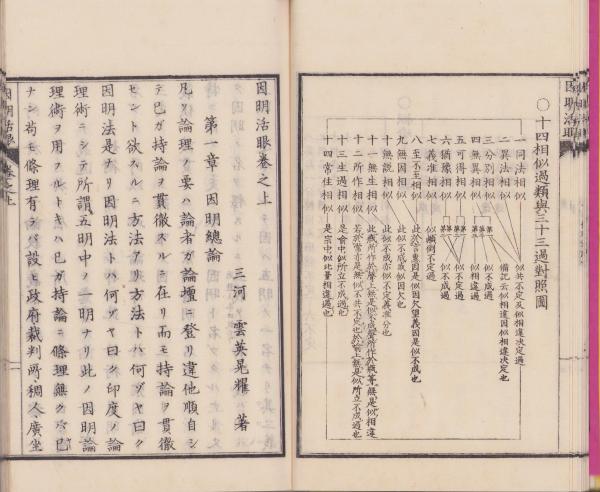 因明活眼
〇十四相似過類與三十三過對照圖
一同法相似
二異法相似
三分別相似
四無異相似
五可得相似
六猶豫相似
七義准相似
八至不至相似
九無因相似
十無說相似
十一無生相似
十二所作相似
十三生過相似
十四常住相似
似共不定及似相違決定過
備記云似相違因似相違決定也
似不成過
似相違過
似不定過
似不成過
似顛倒不定過
似不成或似因欠也
似不成亦似不定義准分也
是喻中似所立不成過也
是宗中似比量相違過也
因明活眼卷之上
三河 雲英晃耀 著
第一章 因明總論
凡ソ論理ノ要ハ論者ガ論壇ニ登リ違他順自シ
テ已ガ持論ヲ貫徹スルニ在リ而モ持論ヲ貫徹
セント欲スルニ方法アリ方法トハ何ゾヤ曰ク
因明法是ナリ因明法トハ何ゾヤ曰ク印度ノ論
理術ニシテ所謂五明中ノ一明ナリ此ノ因明論
理術ヲ用フルトキハ已ガ持論ニ條理無クバ已
ナン苟モ條理有ラバ設ヒ政府裁判所稠人廣坐
因明活眼 卷之上